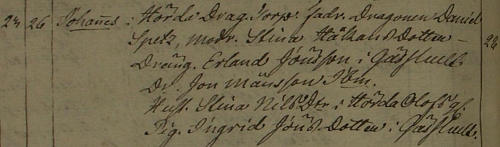 23 26 Johañes i Hörda Drag. Torp. fadr. Dragonen Daniel
Spetz, modr. Stina Håkans Dotter —
Dräng. Erland Jönsson i Gässhult 23
Dr. Jon Månsson Ibm.
Hust. Stina Nils Dtr. i Hörda Olofs g.
Pig. Ingrid Jöns Dotter i Gässhult.